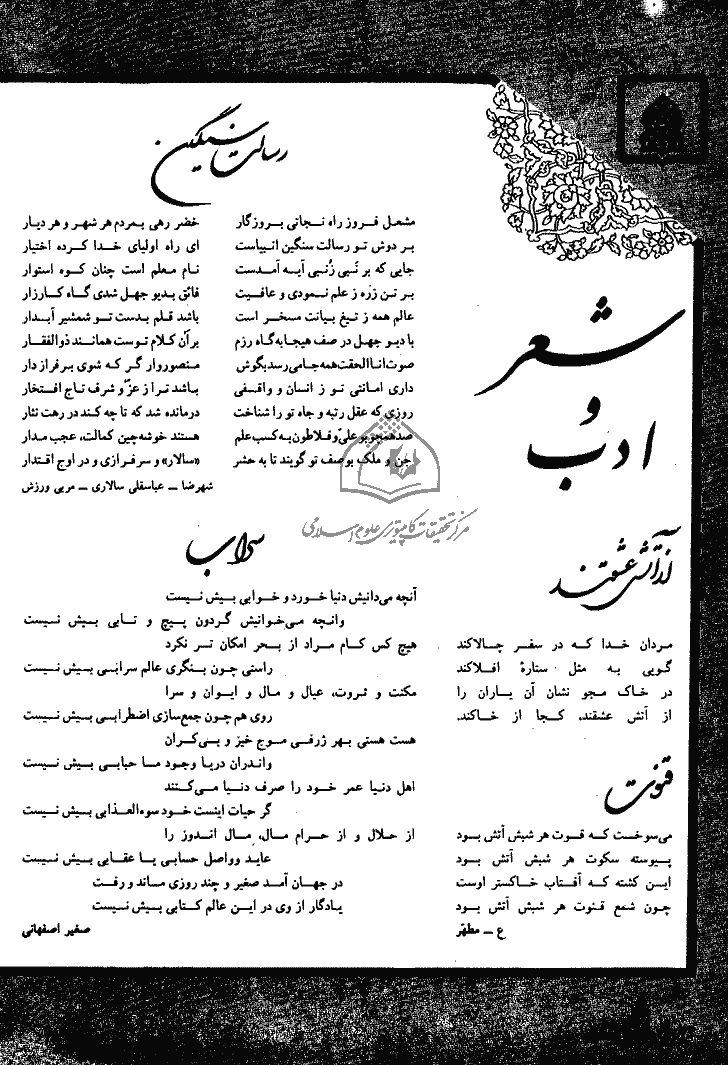 شعر
و
ادب
رسالت سنگین
مشعل فروز راه نجاتی بروزگار
خضر رهی بمردم هر شهر و هر دیار
بر دوش تو رسالت سنگین انبیاست
ای راه اولیای خدا کرده اختیار
جایی که بر نَبی زُنبی آیه آمدست
نام معلم است چنان کوه استوار
بر تن زره ز علم نمودی و عافیت
فائق بدیو جهل شدی گاه کارزار
عالم همه ز تیغ بیانت مسخر است
باشد قلم بدست تو شمشیر آبدار
با دیو جهل در صف هیجا به گاه رزم
بر آن کلام توست همانند ذوالفقار
صوت اناالحقت همه جا می رسد بگوش
منصوروار گر که شوی بر فراز دار
داری امانتی تو ز انسان و واقفی
باشد ترا ز عزّ و شرف تاج افتخار
روزی که عقل رتبه و جاه تو را شناخت
درمانده شد که تا چه کند در رهت نثار
صد همچو بوعلیّ و فلاطون به کسب علم
هستند خوشه‌چین کمالت، عجب مدار
جن و ملک بوصف تو گویند تا به حشر
«سالار» و سرفرازی و در اوج اقتدار
شهرضا ــ عباسقلی سالاری ــ مربی ورزش
مرکز تحقیقات کامپیوتری علوم اسلامی
از آتش عشقند
مردان خدا که در سفر چالاکند
گویی به مثل ستارهٔ افلاکند
در خاک مجو نشان آن یاران را
از آتش عشقند، کجا از خاکند.
قنوت
می‌سوخت که قنوت هر شبش آتش بود
پیوسته سکوت هر شبش آتش بود
این کشته که آفتاب خاکستر اوست
چون شمع قنوت هر شبش آتش بود
ع ــ مطهّر
سراب
آنچه می‌دانیش دنیا خورد و خوابی بیش نیست
وانچه می‌خوانیش گردون پیچ و تابی بیش نیست
هیچ کس کام مراد از بحر امکان تر نکرد
راستی چون بنگری عالم سرابی بیش نیست
مکنت و ثروت، عیال و مال و ایوان و سرا
روی هم چون جمع‌سازی اضطرابی بیش نیست
هست هستی بهر ژرفی موج خیز و بی‌کران
واندران دریا وجود ما حبابی بیش نیست
اهل دنیا عمر خود را صرف دنیا می‌کنند
گر حیات اینست خود سوءالعذابی بیش نیست
از حلال و از حرام مال، مال اندوز را
عاید وواصل حسابی یا عقابی بیش نیست
در جهان آمد صغیر و چند روزی ماند و رفت
یادگار از وی در این عالم کتابی بیش نیست
صغیر اصفهانی